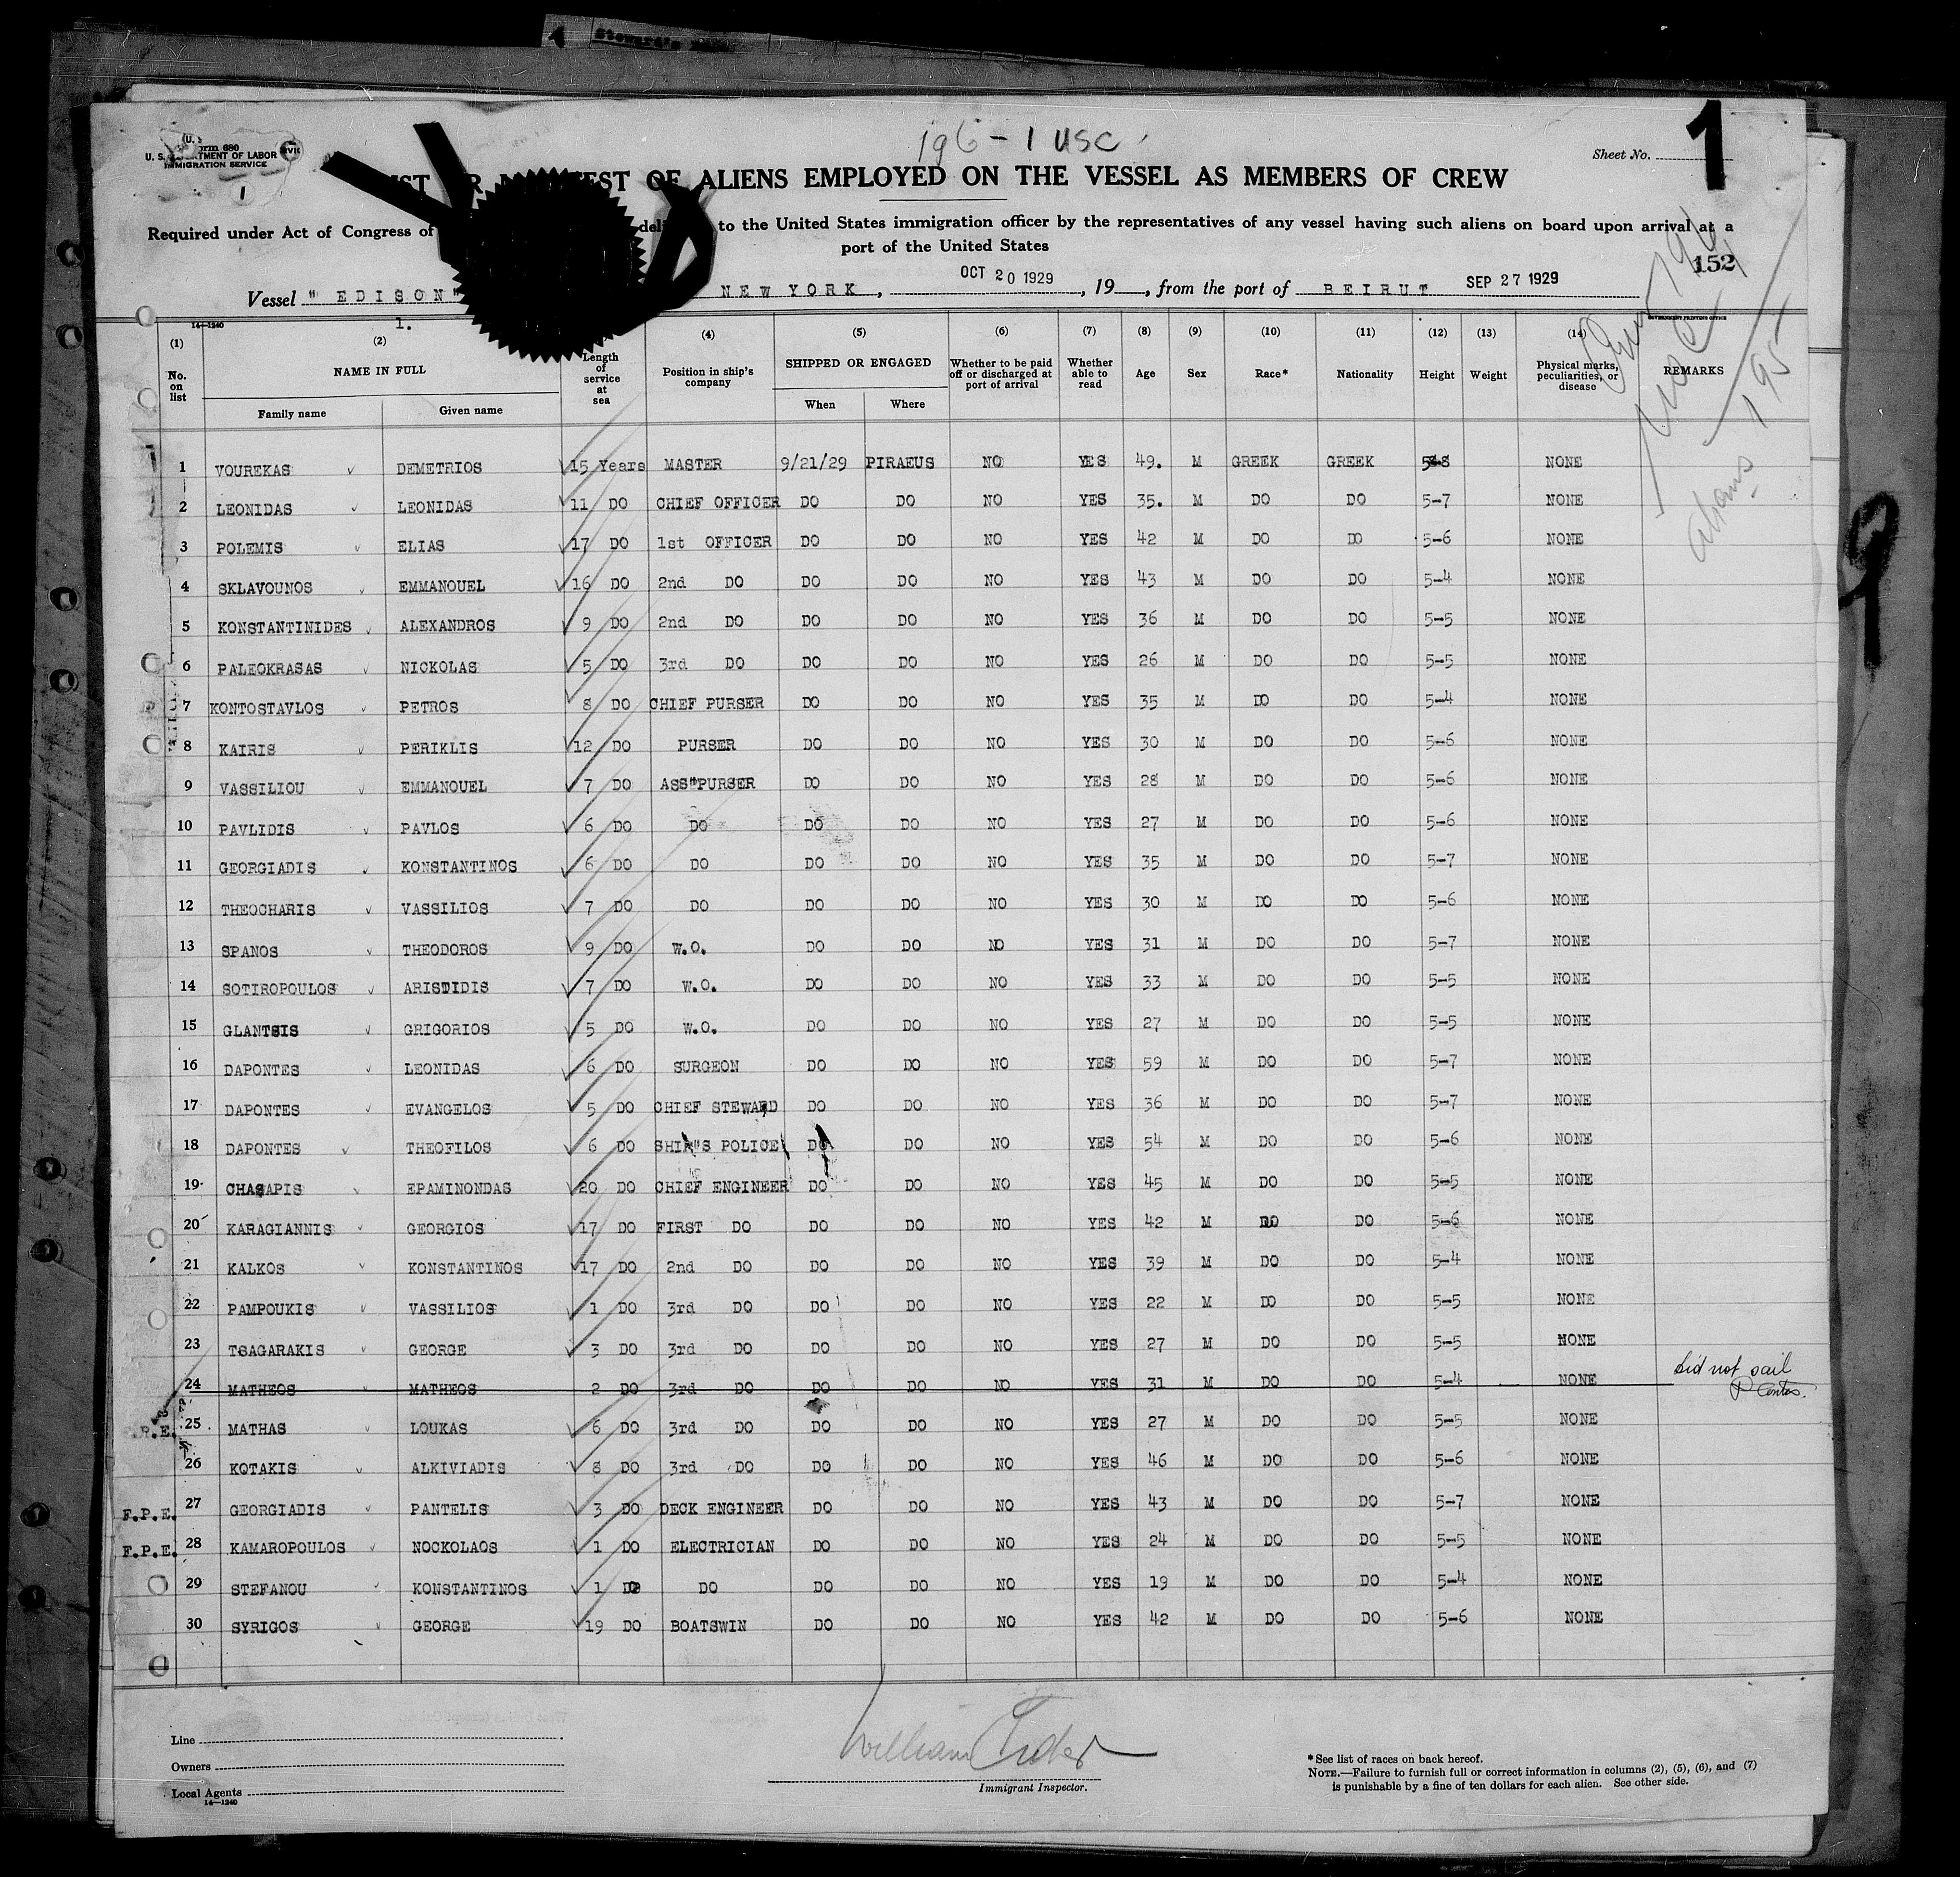 Steward's
196 - 1 USC
1
Form 680
U. S. DEPARTMENT OF LABOR
IMMIGRATION SERVICE
1
Sheet No.
OF ALIENS EMPLOYED ON THE VESSEL AS MEMBERS OF CREW
Required under Act of Congress of to the United States immigration officer by the representatives of any vessel having such aliens on board upon arrival at a
port of the United States
152
Vessel "EDISON" NEW YORK, OCT 20 1929, 19, from the port of BEIRUT SEP 27 1929
14-1240
1.
GOVERNMENT PRINTING OFFICE
(1) (2) (4) (5) (6) (7) (8) (9) (10) (11) (12) (13) (14)
No. on list NAME IN FULL Family name Given name Length of service at sea Position in ship's company SHIPPED OR ENGAGED When Where Whether to be paid off or discharged at port of arrival Whether able to read Age Sex Race* Nationality Height Weight Physical marks, peculiarities, or disease REMARKS
195
1 VOUREKAS DEMETRIOS 15 Years MASTER 9/21/29 PIRAEUS NO YES 49. M GREEK GREEK NONE
2 LEONIDAS LEONIDAS 11 DO CHIEF OFFICER DO DO NO YES 35. M DO DO 5-7 NONE
3 POLEMIS ELIAS 17 DO 1st OFFICER DO DO NO YES 42 M DO DO 5-6 NONE
4 SKLAVOUNOS EMMANOUEL 16 DO 2nd DO DO DO NO YES 43 M DO DO 5-4 NONE
5 KONSTANTINIDES ALEXANDROS 9 DO 2nd DO DO DO NO YES 36 M DO DO 5-5 NONE
6 PALEOKRASAS NICKOLAS 5 DO 3rd DO DO DO NO YES 26 M DO DO 5-5 NONE
7 KONTOSTAVLOS PETROS 8 DO CHIEF PURSER DO DO NO YES 35 M DO DO 5-4 NONE
8 KAIRIS PERIKLIS 12 DO PURSER DO DO NO YES 30 M DO DO 5-6 NONE
9 VASSILIOU EMMANOUEL 7 DO ASS"PURSER DO DO NO YES 28 M DO DO 5-6 NONE
10 PAVLIDIS PAVLOS 6 DO DO DO DO NO YES 27 M DO DO 5-6 NONE
11 GEORGIADIS KONSTANTINOS 6 DO DO DO DO NO YES 35 M DO DO 5-7 NONE
12 THEOCHARIS VASSILIOS 7 DO DO DO DO NO YES 30 M DO DO 5-6 NONE
13 SPANOS THEODOROS 9 DO W.O. DO DO NO YES 31 M DO DO 5-7 NONE
14 SOTIROPOULOS ARISTIDIS 7 DO W.O. DO DO NO YES 33 M DO DO 5-5 NONE
15 GLANTSIS GRIGORIOS 5 DO W.O. DO DO NO YES 27 M DO DO 5-5 NONE
16 DAPONTES LEONIDAS 6 DO SURGEON DO DO NO YES 59 M DO DO 5-7 NONE
17 DAPONTES EVANGELOS 5 DO CHIEF STEWARD DO DO NO YES 36 M DO DO 5-7 NONE
18 DAPONTES THEOFILOS 6 DO SHIP"S POLICE DO DO NO YES 54 M DO DO 5-6 NONE
19 CHASAPIS EPAMINONDAS 20 DO CHIEF ENGINEER DO DO NO YES 45 M DO DO 5-5 NONE
20 KARAGIANNIS GEORGIOS 17 DO FIRST DO DO DO NO YES 42 M DO DO 5-6 NONE
21 KALKOS KONSTANTINOS 17 DO 2nd DO DO DO NO YES 39 M DO DO 5-4 NONE
22 PAMPOUKIS VASSILIOS 1 DO 3rd DO DO DO NO YES 22 M DO DO 5-5 NONE
23 TSAGARAKIS GEORGE 3 DO 3rd DO DO DO NO YES 27 M DO DO 5-5 NONE
24 MATHEOS MATHEOS 2 DO 3rd DO DO DO NO YES 31 M DO DO 5-4 NONE did not sail
25 MATHAS LOUKAS 6 DO 3rd DO DO DO NO YES 27 M DO DO 5-5 NONE
26 KOTAKIS ALKIVIADIS 8 DO 3rd DO DO DO NO YES 46 M DO DO 5-6 NONE
F.P.E. 27 GEORGIADIS PANTELIS 3 DO DECK ENGINEER DO DO NO YES 43 M DO DO 5-7 NONE
F.P.E. 28 KAMAROPOULOS NOCKOLAOS 1 DO ELECTRICIAN DO DO NO YES 24 M DO DO 5-5 NONE
29 STEFANOU KONSTANTINOS 1 DO DO DO DO NO YES 19 M DO DO 5-4 NONE
30 SYRIGOS GEORGE 19 DO BOATSWIN DO DO NO YES 42 M DO DO 5-6 NONE
Line
Owners
Local Agents
14-1240
William
Immigrant Inspector.
*See list of races on back hereof.
NOTE.—Failure to furnish full or correct information in columns (2), (5), (6), and (7)
is punishable by a fine of ten dollars for each alien. See other side.